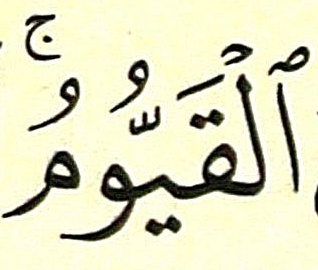 ٱلۡقَيُّومُۚ